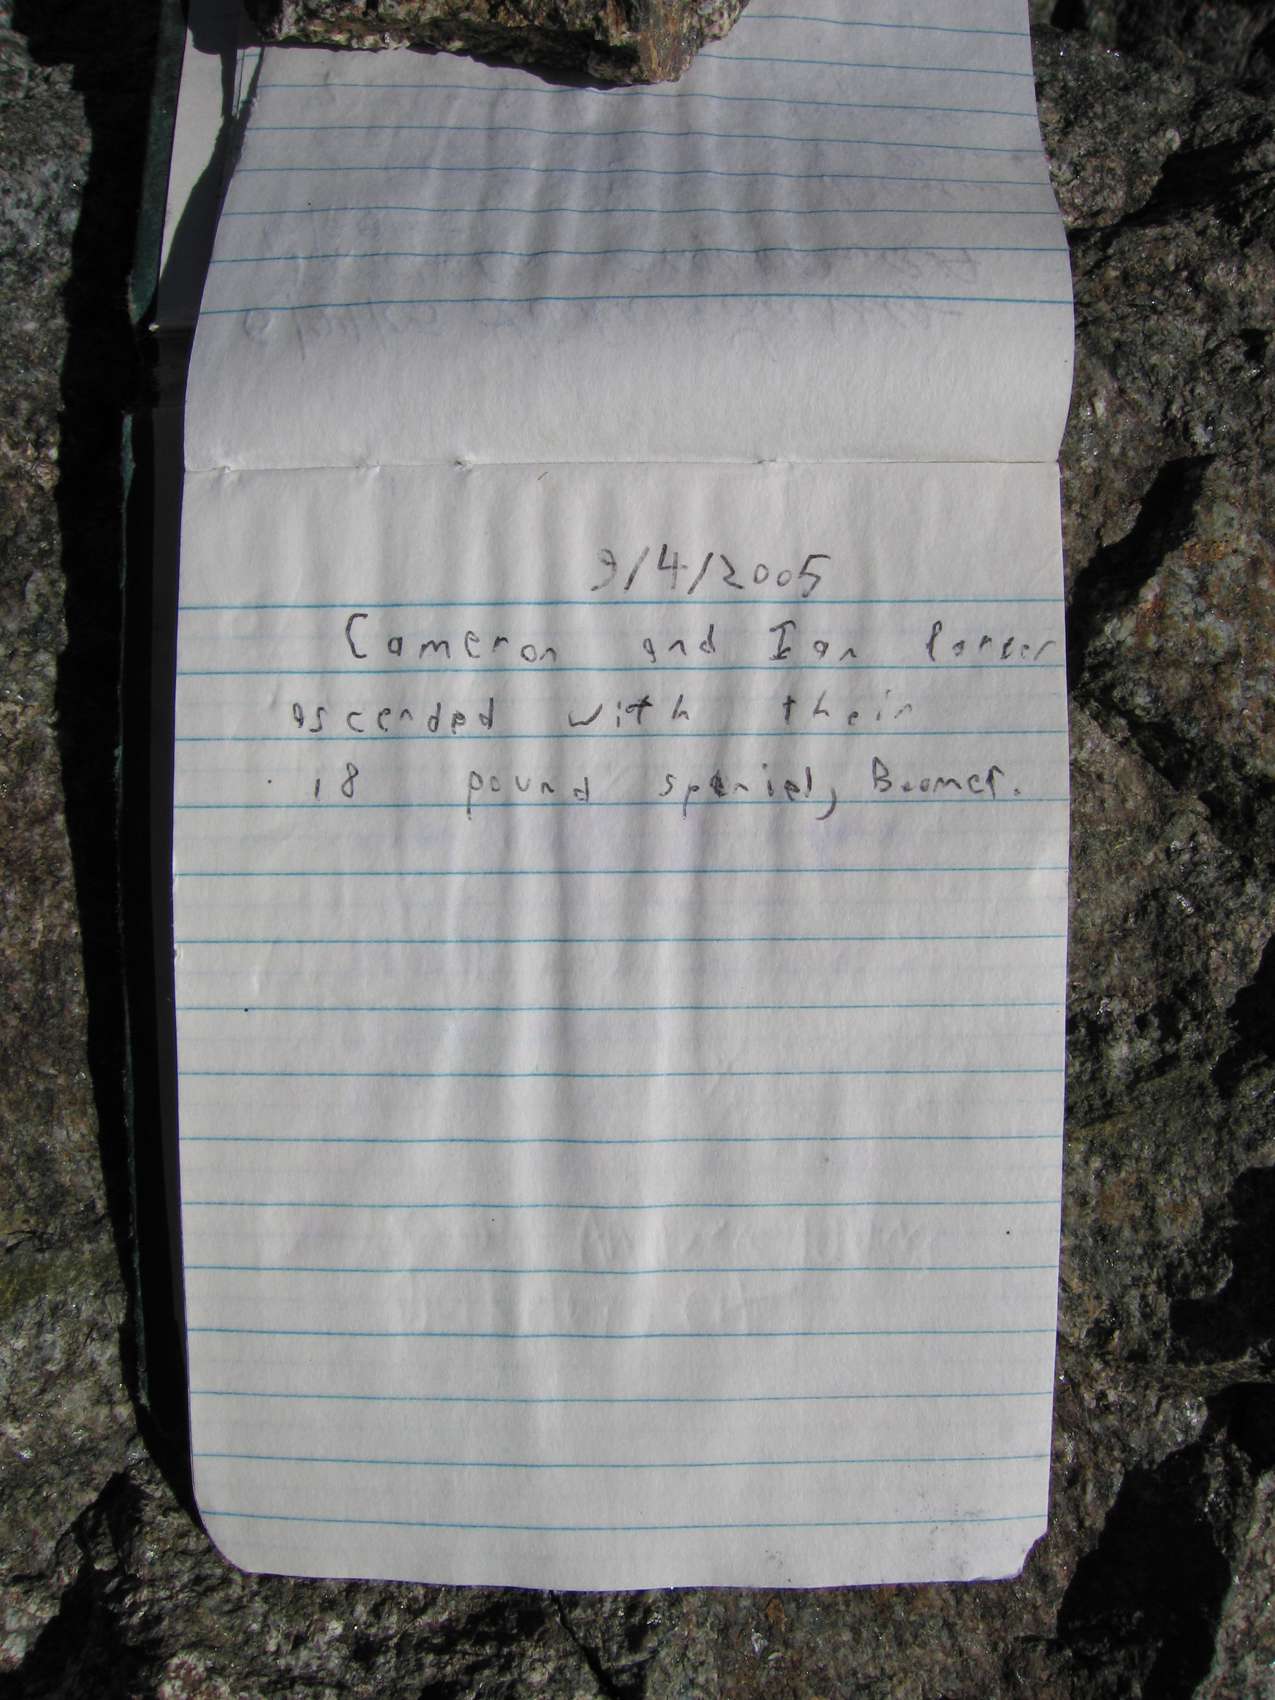 9/4/2005
Cameron and Ian
ascended with their
18 pound spaniel, Boomer.